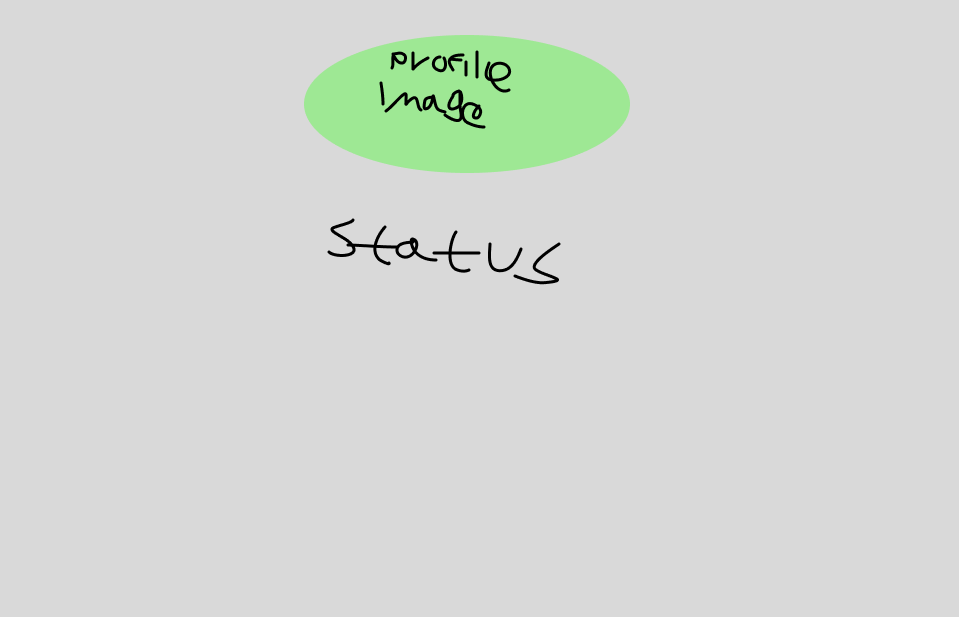 profile
image
status